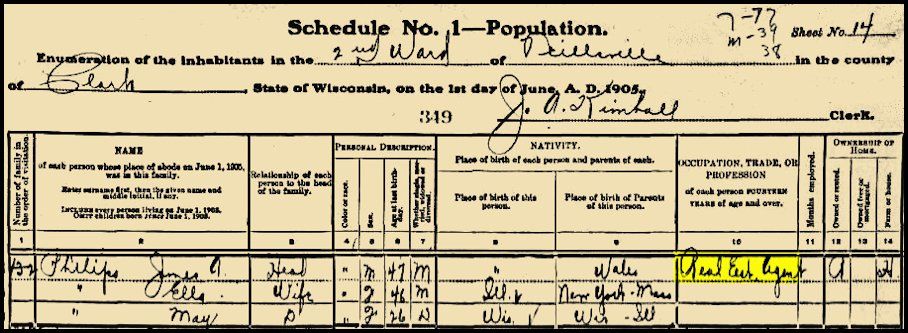 Schedule No. 1—Population.
7-77
m-39
38
Sheet No. 14
Enumeration of the inhabitants in the 2nd Ward of Neillsville in the county
of Clark, State of Wisconsin, on the 1st day of June, A. D. 1905.
349 J. A. Kimball Clerk.
Number of family in the order of visitation.
NAME
of each person whose place of abode on June 1, 1905, was in this family.
Enter surname first, then the given name and middle initial, if any.
INCLUDE every person living on June 1, 1905.
OMIT children born SINCE June 1, 1905.
Relationship of each person to the head of the family.
PERSONAL DESCRIPTION.
Color or race.
Sex.
Age at last birthday.
Whether single, married, widowed or divorced.
NATIVITY.
Place of birth of each person and parents of each.
Place of birth of this person.
Place of birth of Parents of this person.
OCCUPATION, TRADE, OR PROFESSION
of each person FOURTEEN YEARS of age and over.
Months employed.
OWNERSHIP OF HOME.
Owned or rented.
Owned free or mortgaged.
Farm or house.
1 2 3 4 5 6 7 8 9 10 11 12 13 14
132 Philips James A. Head " M 47 M " Wales Real Est. Agent R H
" Ella Wife " F 46 M Ill. New York-Mass
" May D " F 26 D Wis. Wis-Ill